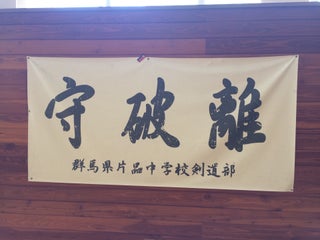 守破離
群馬県片品中学校剣道部